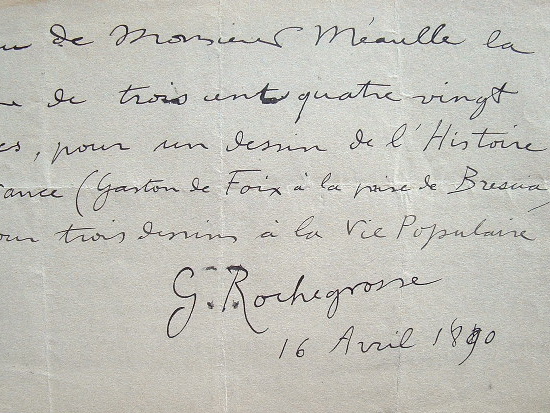 de Monsieur Méaulle la
de trois cent quatre vingt
pour un dessin de l'Histoire
(Gaston de Foix à la prise de Brescia)
trois dessins à la Vie Populaire
G. Rochegrosse
16 Avril 1890